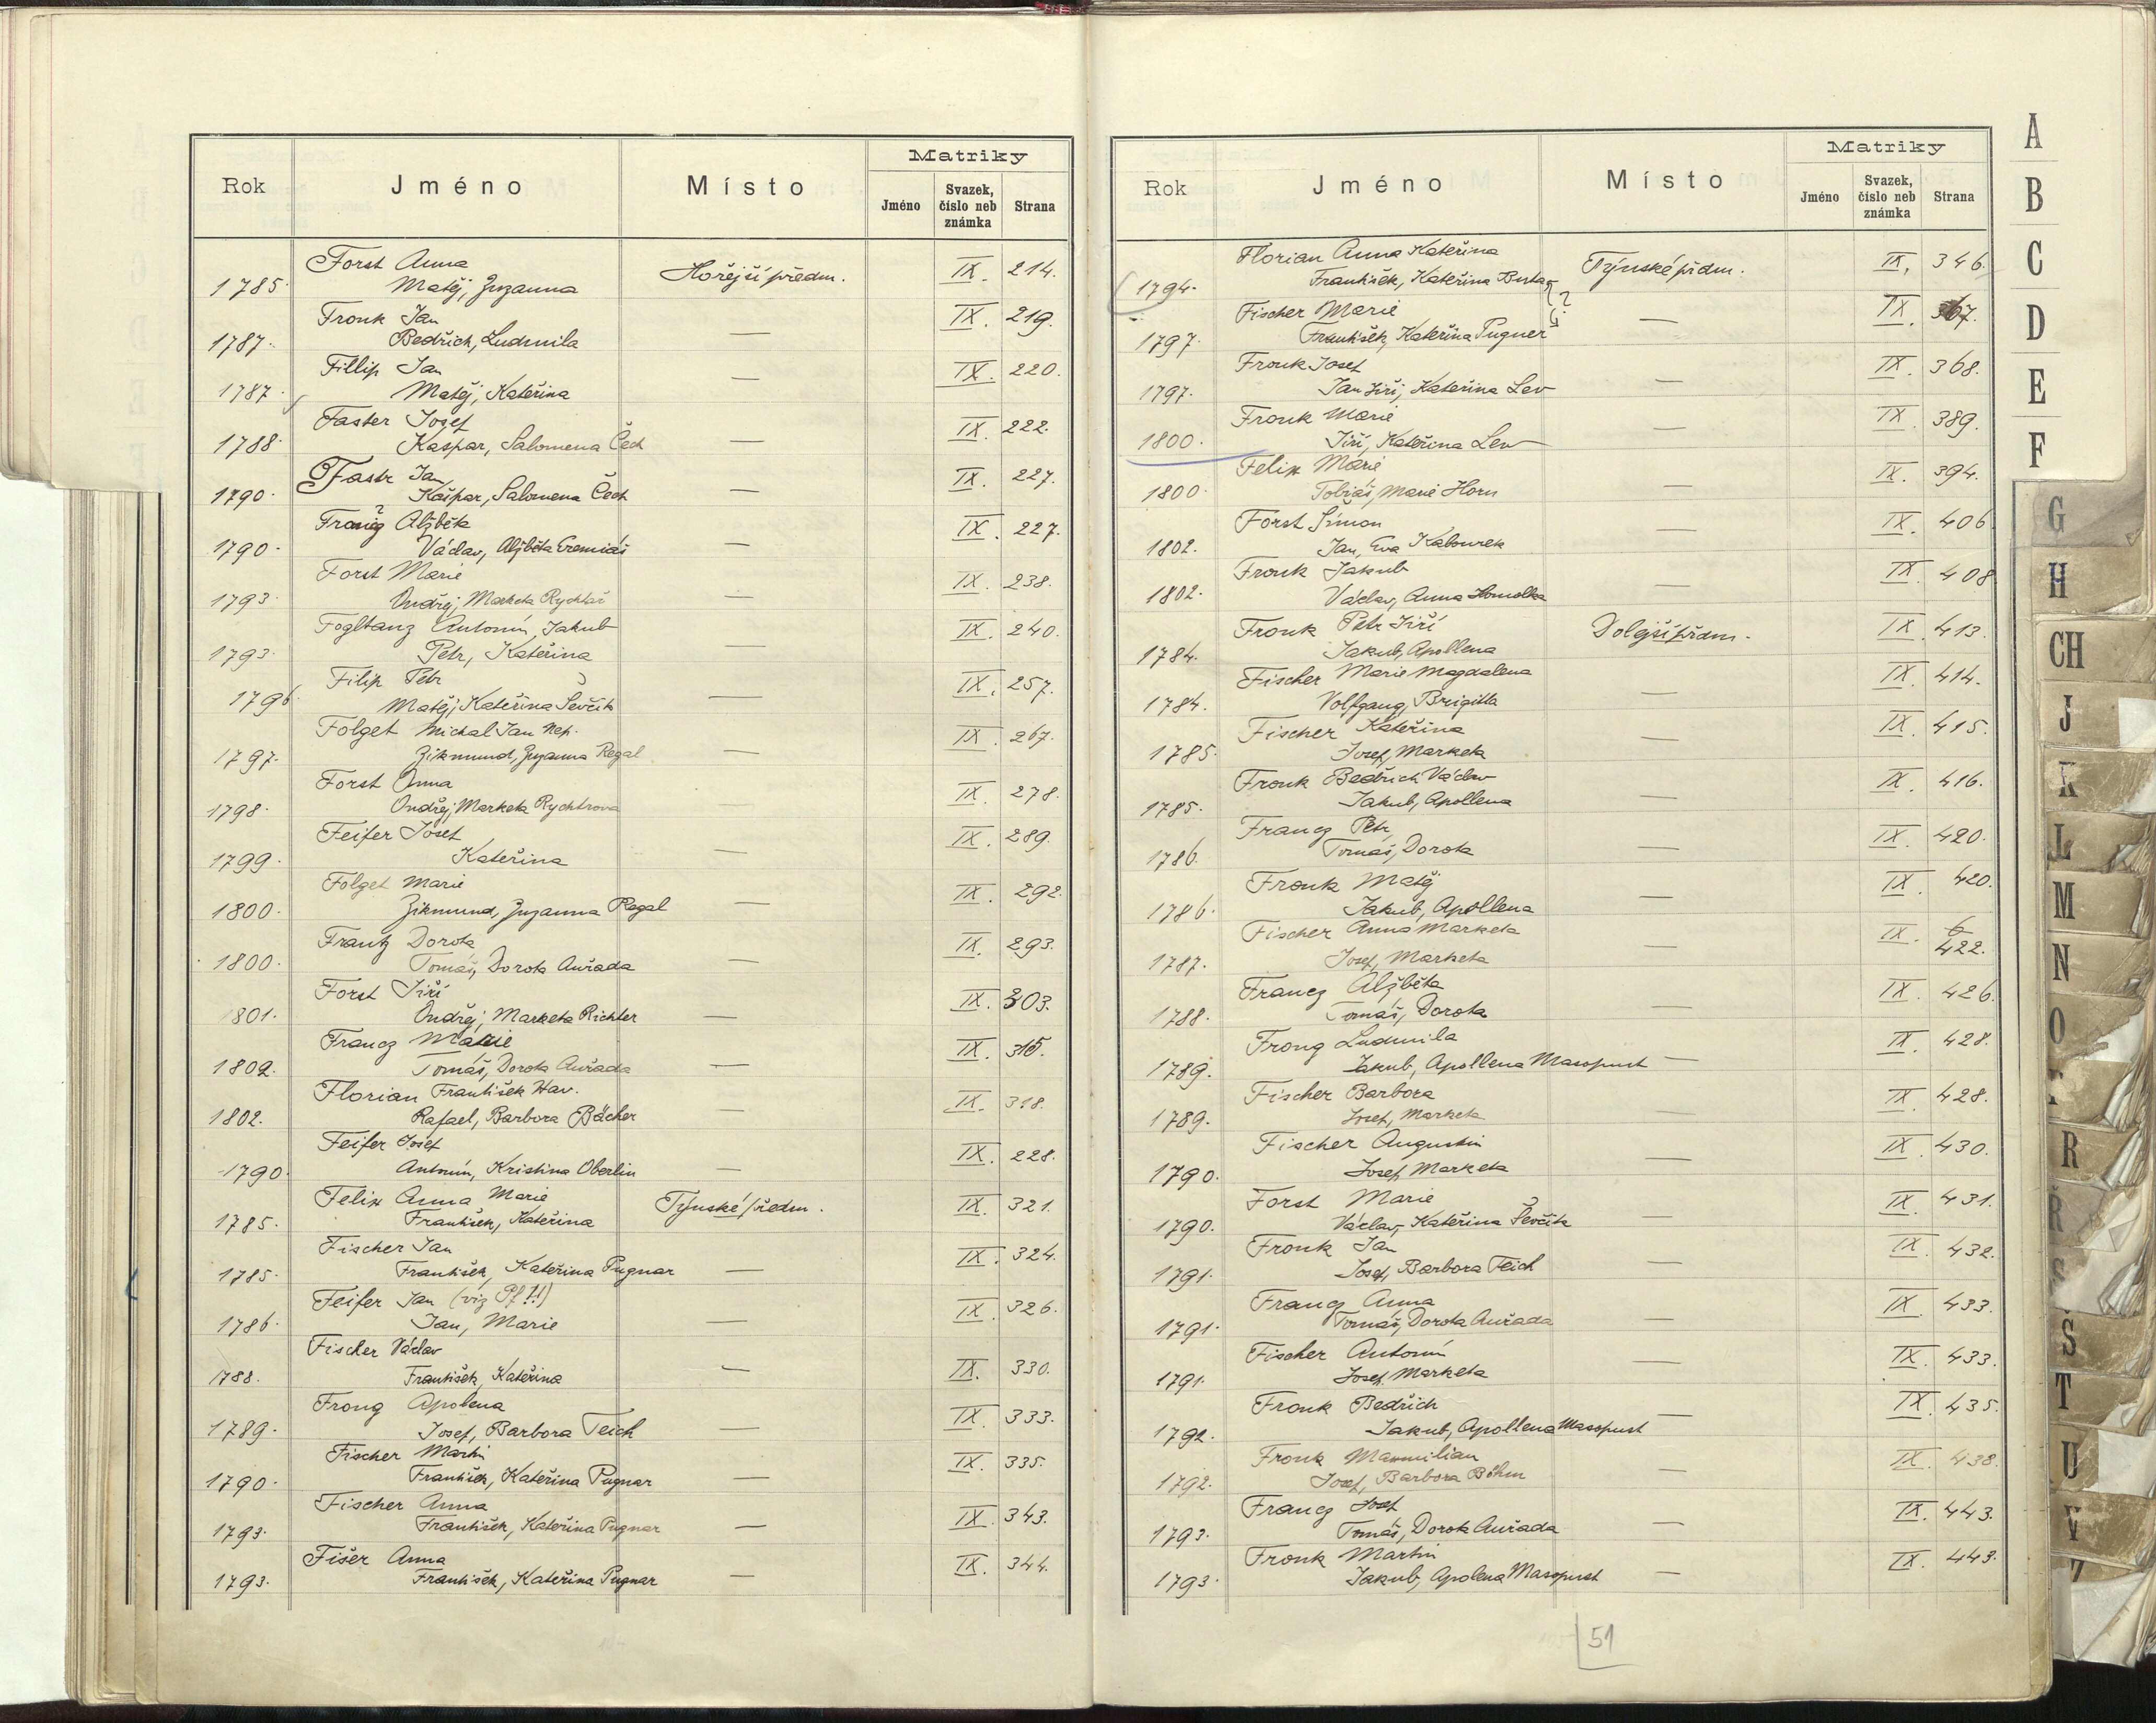 Rok Jméno Místo Matriky
Jméno Svazek, číslo neb známka Strana
Forst Anna
1785. Matěj, Zuzanna Hořejší předm. IX. 214.
Fronk Jan
1787. Bedřich, Ludmila — IX. 219.
Fillip Jan
1787. Matěj, Kateřina — IX. 220.
Faster Josef
1788. Kašpar, Salomena Čech — IX. 222.
Fastr Jan
1790. Kašpar, Salomena Čech — IX. 227.
Alžběta
1790. Václav, Alžběta Eremiáš — IX. 227.
Forst Marie
1793. Ondřej, Marketa Rychtař — IX. 238.
Fogltanz Antonín, Jakub
1793. Petr, Kateřina — IX. 240.
Filip Petr
1796. Matěj, Kateřina Ševčik — IX. 257.
Folget Michal Jan Nep.
1797. Zikmund, Zuzanna Regal — IX. 267.
Forst Anna
1798. Ondřej, Marketa Rychtrova — IX. 278.
Feifer Josef
1799. Kateřina — IX. 289.
Folget Marie
1800. Zikmund, Zuzanna Regal — IX. 292.
Frantz Dorota
1800. Tomáš, Dorota Auřada — IX. 293.
Forst Jiří
1801. Ondřej, Marketa Richter — IX. 303.
Francz Marie
1802. Tomáš, Dorota Auřada — IX. 315.
Florian František Hav.
1802. Rafael, Barbora Bächer — IX. 318.
Feifer Josef
1790. Antonín, Kristina Oberlin — IX. 228.
Felix Anna Marie
1785. František, Kateřina Týnské předm. IX. 321.
Fischer Jan
1785. František, Kateřina Pugnar — IX. 324.
Feifer Jan (viz Pf!!)
1786. Jan, Marie — IX. 326.
Fischer Václav
1788. František, Kateřina — IX. 330.
Frong Apolena
1789. Josef, Barbora Teich — IX. 333.
Fischer Martin
1790. František, Kateřina Pugnar — IX. 335.
Fischer Anna
1793. František, Kateřina Pugnar — IX. 343.
Fišer Anna
1793. František, Kateřina Pugnar — IX. 344.
Rok Jméno Místo Matriky
Jméno Svazek, číslo neb známka Strana
Florian Anna Kateřina
1794. František, Kateřina Týnské předm. IX. 346.
Fischer Marie ?
1797. František, Kateřina Pugner — IX. 367.
Fronk Josef
1797. Jan Jiří, Kateřina Lev — IX. 368.
Fronk Marie
1800. Jiří, Kateřina Lev — IX. 389.
Felix Marie
1800. Tobiáš, Marie Horn — IX. 394.
Forst Šimon
1802. Jan, Eva Kabourek — IX. 406.
Fronk Jakub
1802. Václav, Anna Homolka — IX. 408
Fronk Petr Jiří
1784. Jakub, Apollena Dolejší předm. IX. 413.
Fischer Marie Magdalena
1784. Volfgang, Brigitta — IX. 414.
Fischer Kateřina
1785. Josef, Marketa — IX. 415.
Fronk Bedřich Václav
1785. Jakub, Apollena — IX. 416.
Francz Petr
1786. Tomáš, Dorota — IX. 420.
Fronk Matěj
1786. Jakub, Apollena — IX. 420.
Fischer Anna Marketa
1787. Josef, Marketa — IX. 422.
Francz Alžběta
1788. Tomáš, Dorota — IX. 426.
Frong Ludmila
1789. Jakub, Apollena Masopust — IX. 428.
Fischer Barbora
1789. Josef, Marketa — IX. 428.
Fischer Augustin
1790. Josef, Marketa — IX. 430.
Forst Marie
1790. Václav, Kateřina Ševčik — IX. 431.
Fronk Jan
1791. Josef, Barbora Teich — IX. 432.
Francz Anna
1791. Tomáš, Dorota Auřada — IX. 433.
Fischer Antonín
1791. Josef, Marketa — IX. 433.
Fronk Bedřich
1792. Jakub, Apollena Masopust — IX. 435.
Fronk Maxmilian
1792. Josef, Barbora Böhm — IX. 438.
Francz Josef
1793. Tomáš, Dorota Auřada — IX. 443.
Fronk Martin
1793. Jakub, Apolena Masopust — IX. 443.
51
A
B
C
D
E
F
G
H
CH
J
K
L
M
N
O
R
Ř
S
Š
T
U
V